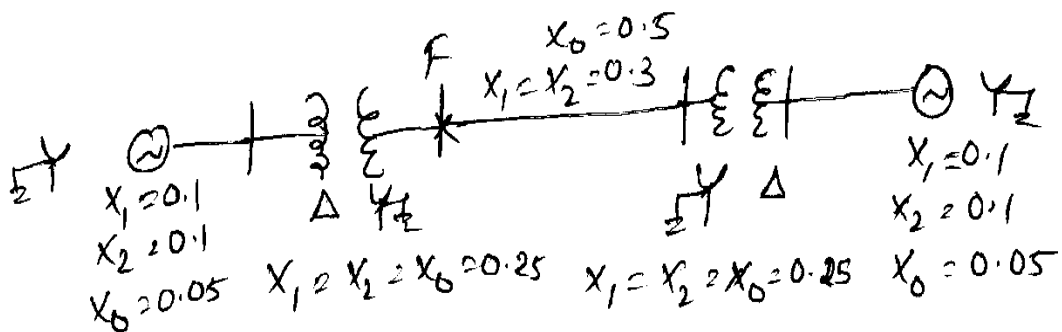 F
X₀ = 0.5
X₁ = X₂ = 0.3
X₁ = 0.1
X₂ = 0.1
X₀ = 0.05
Δ
X₁ = X₂ = X₀ = 0.25
Δ
X₁ = X₂ = X₀ = 0.25
X₁ = 0.1
X₂ = 0.1
X₀ = 0.05